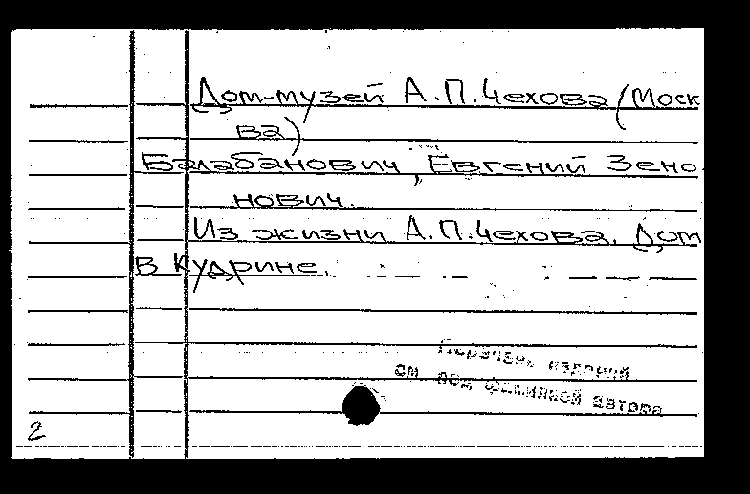 Дом-музей А.П.Чехова (Моск
ва)
Балабанович, Евгений Зено
нович.
Из жизни А.П.Чехова. Дом
в Кудрине.
Перечень изданий
см под фамилией автора
2